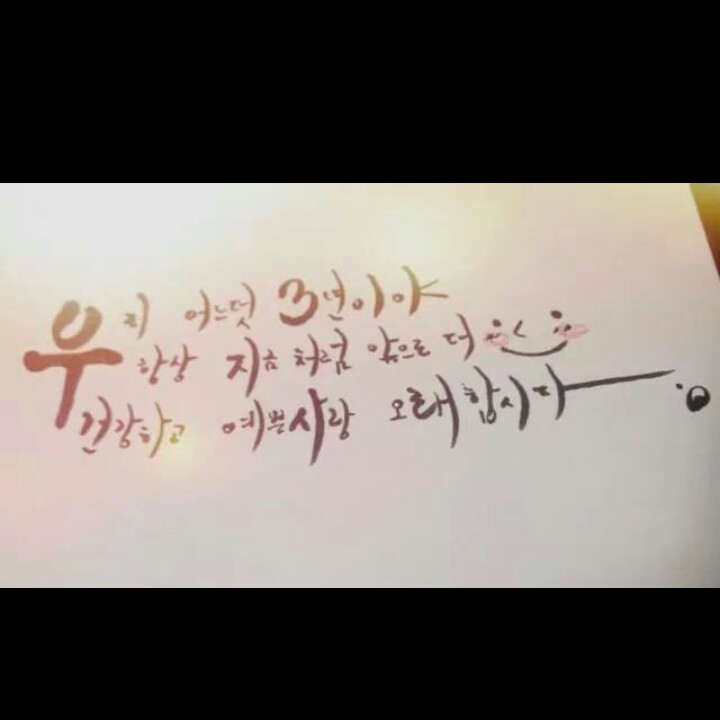 우리 어느덧 3년이야
항상 지금처럼 앞으로 더
건강하고 예쁜사랑 오래합시다